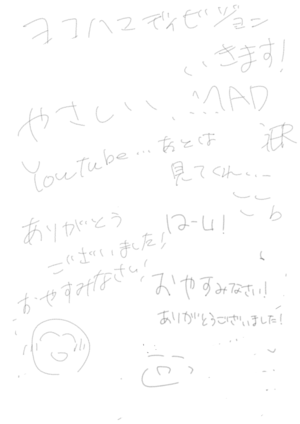 ヨコハマディビジョン
いきます!
やさしい、... MAD
Youtube... あとは
見てくれ、、
ありがとう
ございました!
おやすみなさい!
おやすみなさい!
ありがとうございました!